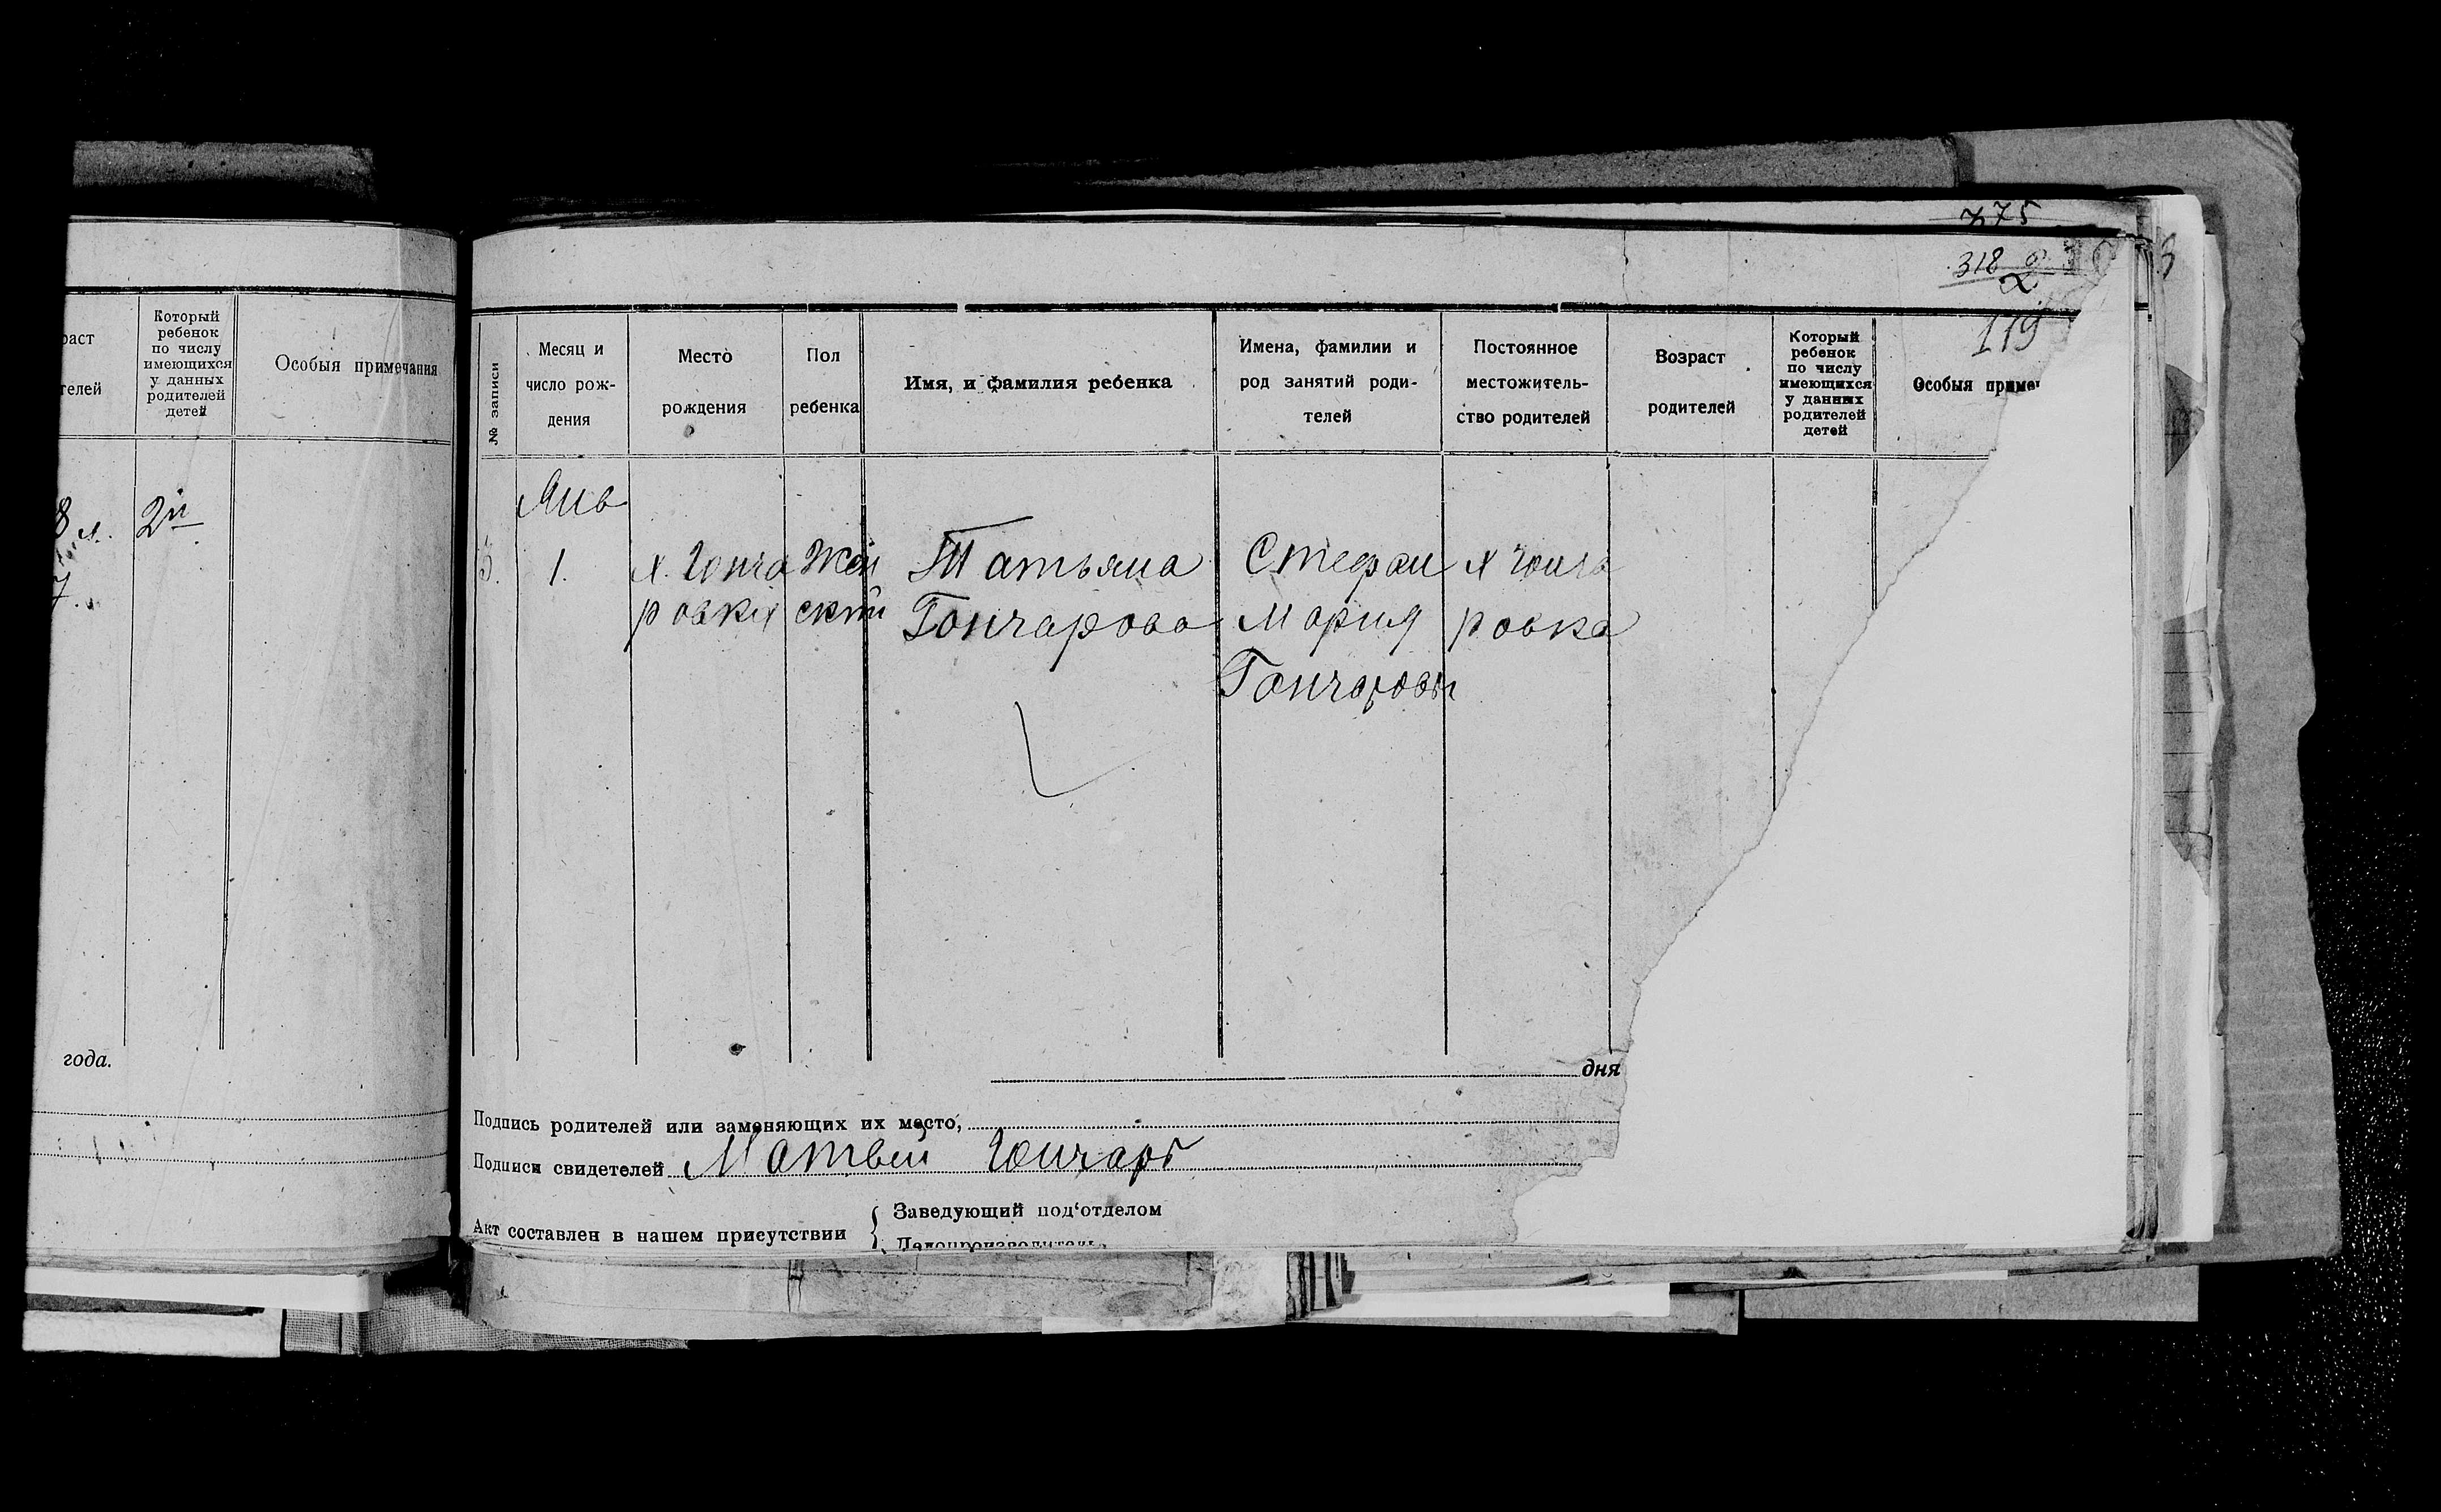 раст
телей
Который
ребенок
по числу
имеющихся
у данных
родителей
детей
Особыя примечания
8 л.
2й
7.
года.
375
318
2
119
№ записи
Месяц и
число рож-
дения
Место
рождения
Пол
ребенка
Имя, и фамилия ребенка
Имена, фамилии и
род занятий роди-
телей
Постоянное
местожитель-
ство родителей
Возраст
родителей
Который
ребенок
по числу
имеющихся
у данных
родителей
детей
Особыя приме
5.
Янв
1.
х. Гонча
ровки
Жен
ский
Татьяна
Гончарова
Стефан
Мария
Гончаровы
х Гонча
ровка
дня
Подпись родителей или заменяющих их место,
Подписи свидетелей Матвей Гончаръ
Акт составлен в нашем присутствии
Заведующий под‘отделом
Делопроизводитель